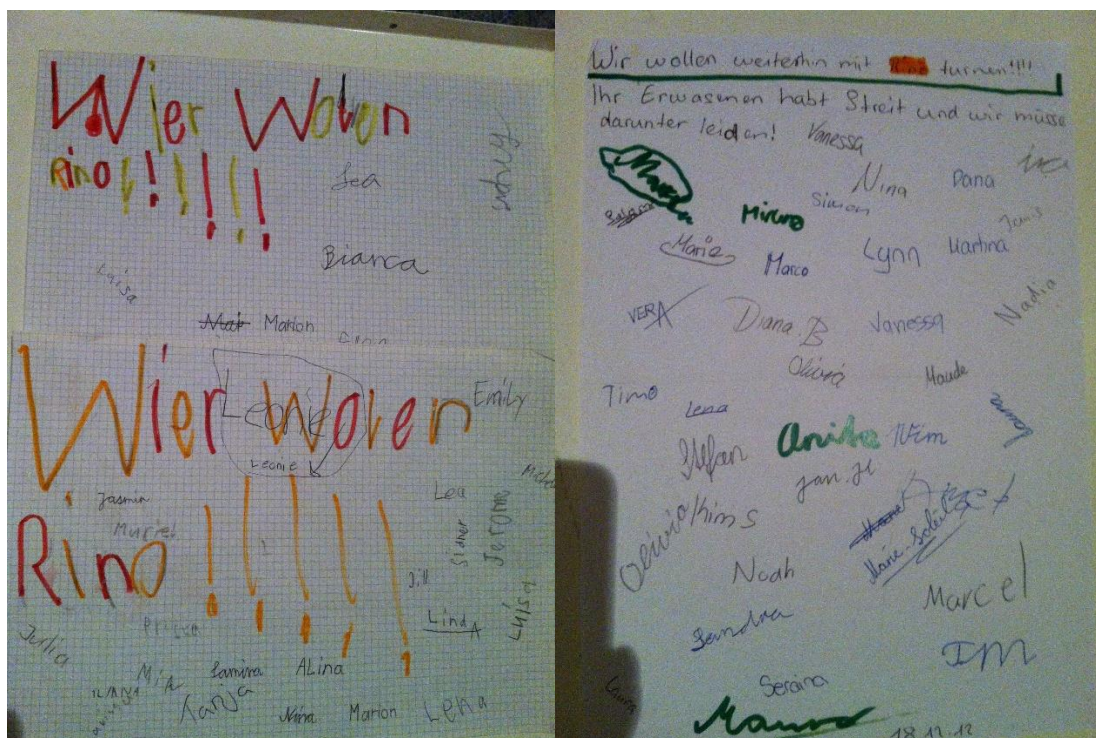 Wier Wollen
Rino !!!!!!
Lea
Bianca
Luisa
Marion
Wier Wolen
Leonie
Leonie
Emily
Rino !!!!!
Jasmin
Muriel
Lea
Jerome
Jill
Linda
Luisa
Julia
Mia
Samira
ALina
Tanja
Nina
Marion
Lena
Wir wollen weiterhin mit Rino turnen!!!!
Ihr Erwasenen habt Streit und wir müsse
darunter leiden!
Vanessa
Nina
Dana
Simon
Maria
Marco
Lynn
Martina
VERA
Diana.B
Vanessa
Nadia
Olivia
Maude
Timo
Lena
Laura
Stefan
Anika
Jan.H
Olivia
Kim S
Noah
Marcel
Sandra
Seraina
Laura
18.12.12